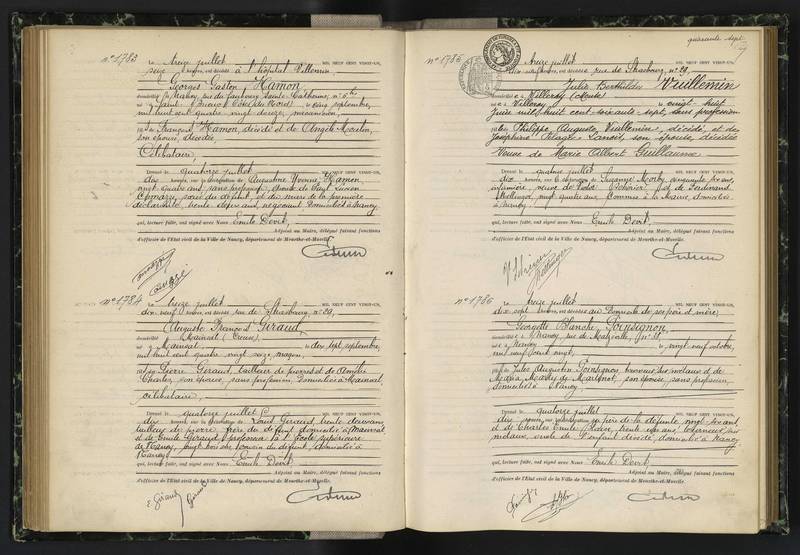 n° 1783 Le treize juillet MIL NEUF CENT VINGT-UN,
seize heures, est décédé à l'hôpital Villemin
Georges Gaston HAMON
domicilié à Nancy, rue du faubourg Sainte-Catherine, n° 5
né à Saint-Brieuc (Côtes du Nord) le cinq septembre,
mil huit cent quatre vingt douze, mécanicien,
fils de François Hamon, décédé et de Angèle
son épouse, décédée
Célibataire
Dressé le quatorze juillet MIL NEUF CENT VINGT-UN,
dix heures, sur la déclaration de Augustine Yvonne Hamon
vingt quatre ans, sans profession, épouse de
sœur du défunt, et du mari de la première
déclarante, trente deux ans, négociant, domiciliés à Nancy
qui, lecture faite, ont signé avec Nous Emile Devit,
Adjoint au Maire, délégué faisant fonctions
d'officier de l'Etat civil de la Ville de Nancy, département de Meurthe-et-Moselle.
n° 1784 Le treize juillet MIL NEUF CENT VINGT-UN,
dix neuf heures, est décédé rue de Strasbourg, n° 29,
Auguste François GIRAUD
domicilié à Mainsat (Creuse)
né à Mainsat le dix sept septembre,
mil huit cent quatre vingt seize, maçon,
fils de Pierre Giraud, tailleur de pierres et de Amélie
Charles, son épouse, sans profession, domiciliés à Mainsat,
célibataire,
Dressé le quatorze juillet MIL NEUF CENT VINGT-UN,
dix heures, sur la déclaration de Louis Giraud, trente deux ans,
tailleur de pierre, frère du défunt domicilié à Mainsat
et de Emile Giraud, professeur à l'Ecole supérieure
de Nancy, vingt trois ans, cousin du défunt, domicilié à
Nancy
qui, lecture faite, ont signé avec Nous Emile Devit,
Adjoint au Maire, délégué faisant fonctions
d'officier de l'Etat civil de la Ville de Nancy, département de Meurthe-et-Moselle.
E. Giraud
Giraud
quarante sept
n° 1785 Le treize juillet MIL NEUF CENT VINGT-UN,
dix heures, est décédée rue de Strasbourg, n° 29,
Julie Berthilde VUILLEMIN
domiciliée à Villeroy (Meuse)
née à Villeroy le vingt-huit
Juin mil huit cent soixante-sept, sans profession
fille de Philippe Auguste Vuillemin, décédé, et de
Joséphine son épouse, décédée
Veuve de Marie Albert Guillaume
Dressé le quatorze juillet MIL NEUF CENT VINGT-UN,
dix heures, sur la déclaration de Suzanne cinquante trois ans,
infirmière, veuve de et de Ferdinand
vingt quatre ans, Commis à la Mairie, domiciliés
à Nancy
qui, lecture faite, ont signé avec Nous Emile Devit,
Adjoint au Maire, délégué faisant fonctions
d'officier de l'Etat civil de la Ville de Nancy, département de Meurthe-et-Moselle.
n° 1786 Le treize juillet MIL NEUF CENT VINGT-UN,
dix sept heures, est décédée au domicile de ses père et mère,
Georgette Blanche POINSIGNON,
domiciliée à Nancy, rue de
née à Nancy le vingt neuf octobre,
mil neuf cent vingt,
fille de Jules Augustin Poinsignon, sur métaux et de
Maria son épouse, sans profession,
domiciliés à Nancy
Dressé le quatorze juillet MIL NEUF CENT VINGT-UN,
dix heures, sur la déclaration du père de la défunte, vingt six ans,
et de Charles Emile trente ans,
métaux, oncle de l'enfant décédé, domicilié à Nancy
qui, lecture faite, ont signé avec Nous Emile Devit,
Adjoint au Maire, délégué faisant fonctions
d'officier de l'Etat civil de la Ville de Nancy, département de Meurthe-et-Moselle.